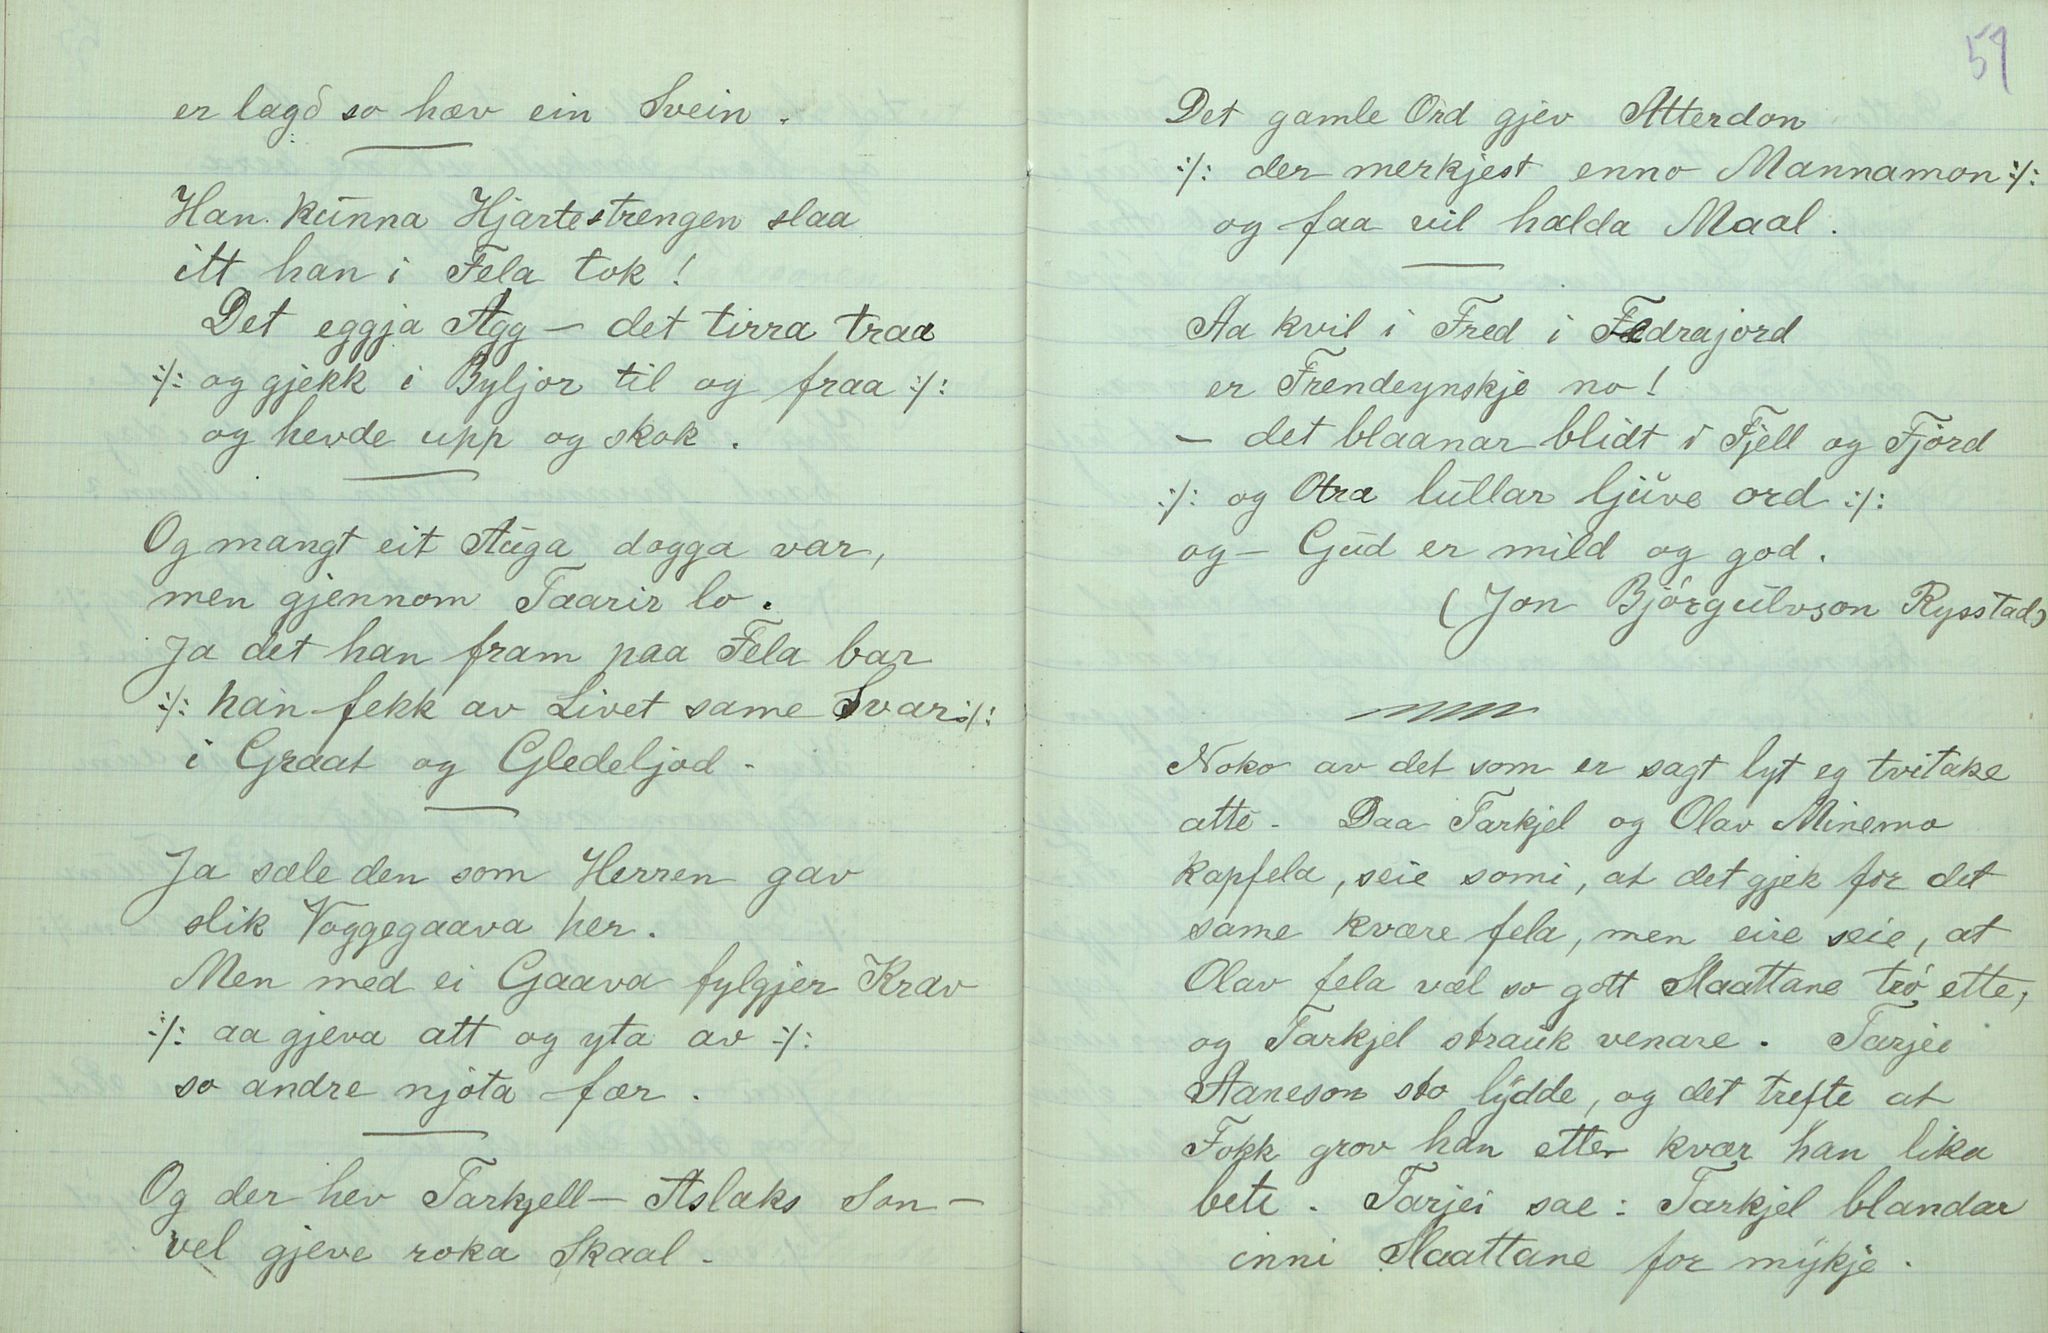 er lagd so hæv ein Svein.
Han kunna Hjartestrengen slaa
itt han i Fela tok!
Det eggja Agg — det tirra traa
:/: og gjekk i Byljor til og fraa :/:
og hevde upp og skok.
Og mangt eit Auga dogga var,
men gjennom Taarir lo.
Ja det han fram paa Fela bar
:/: han fekk av Livet same Svar :/:
i Graat og Gledeljod.
Ja sæle den som Herren gav
slik Voggegaava her.
Men med ei Gaava fylgjer Krav
:/: aa gjeva att og yta av :/:
so andre njota fær.
Og der hev Tarkjell — Aslaks Son —
vel gjeve roka Skaal.
59
Det gamle Ord gjev Atterdon
:/: der merkjest enno Mannamon :/:
og faa vil halda Maal.
Aa kvil i Fred i Fedrajord
er Frendeynskje no!
— det blaanar blidt i Fjell og Fjord
:/: og Otra lullar ljuve ord :/:
og — Gud er mild og god.
(Jon Björgulvson Rysstad)
Noko av det som er sagt lyt eg tvitake
atte. Daa Tarkjel og Olav Minemo
kapfela, seie somi, at det gjek for det
same kvære fela, men eire seie, at
Olav fela væl so gott Slaattane tró ette,
og Tarkjel strauk venare. Tarjei
Aaneson sto lydde, og det trefte at
Fokk grov han etter kvær han lika
bete. Tarjei sae: Tarkjel blandar
inni Slaattane for mykje.